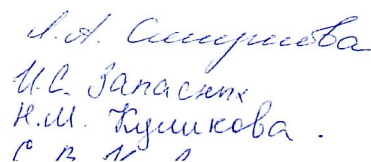 Л. А. Смирнова
И. С. Запасных
Н. М. Куликова.
С. В.